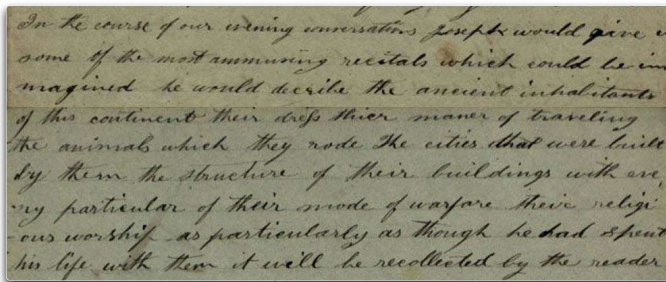 In the course of our evening conversations Joseph would give
some of the most ammusing recitals which could be im
magined he would decribe the ancient inhabitants
of this continent their dress thier maner of traveling
the animals which they rode The cities that were built
by them the structure of their buildings with eve
ry particular of their mode of warfare their religi
ous worship as particularly as though he had spent
his life with them it will be recollected by the reader